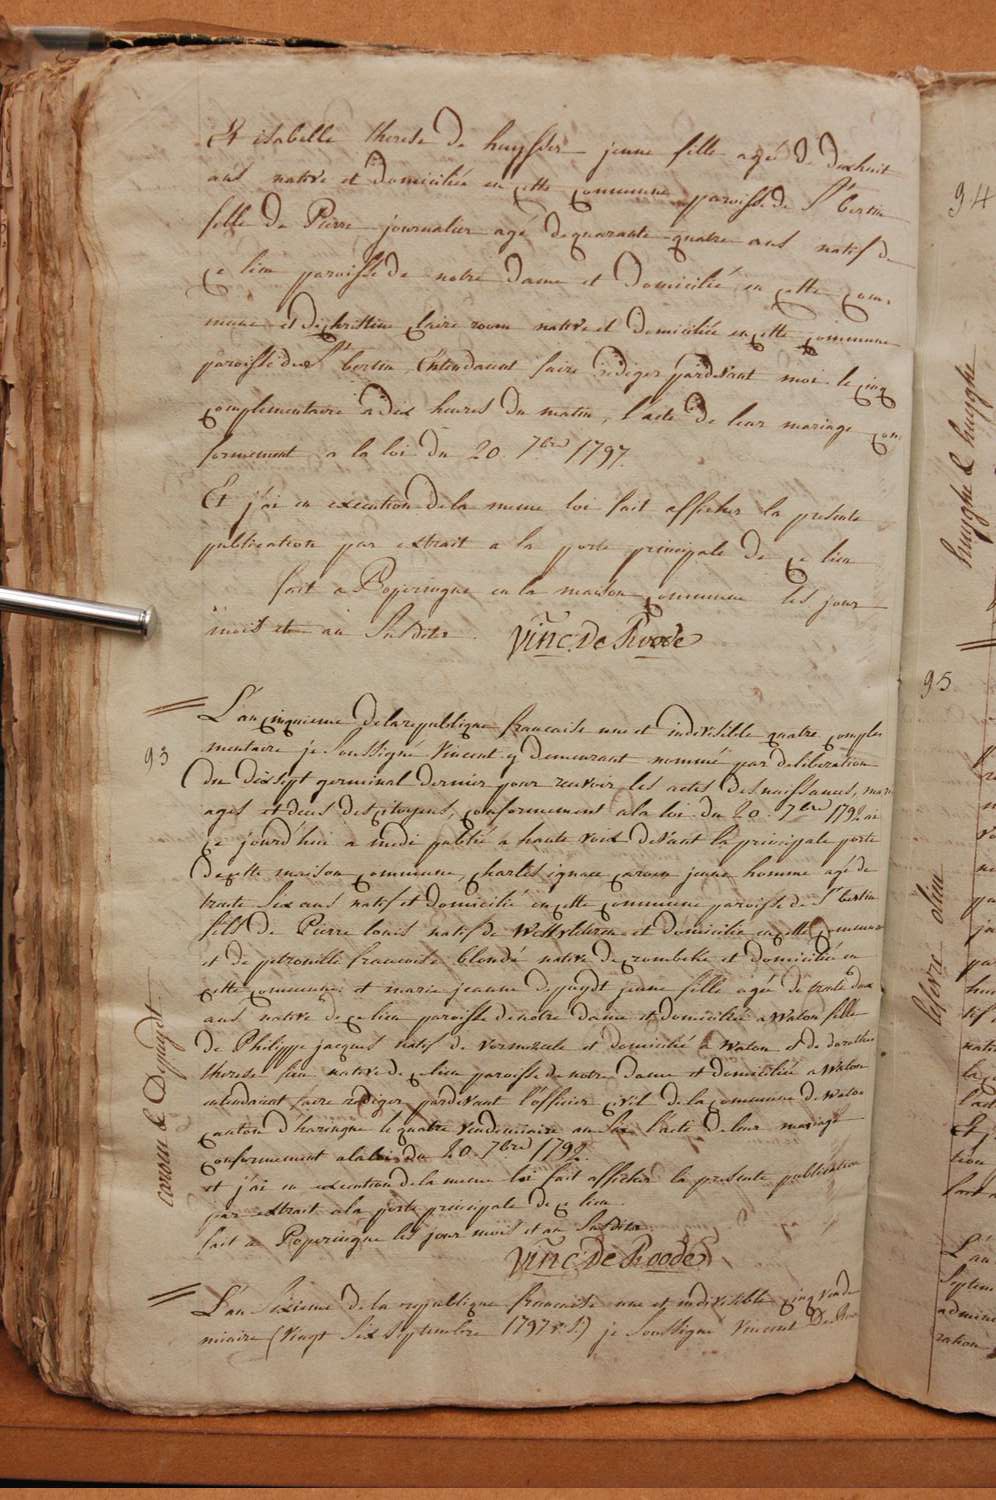 Et isabelle therese De huysser jeune fille agé De dixhuit
ans native et domiciliée en cette commune paroisse de St bertin
fille De Pierre journalier agé de quarante quatre ans natif de
ce lieu paroisse de notre dame et Domicilié en cette com-
mune et de christine claire room native et domiciliée en cette commune
paroisse de St bertin Entendant faire rédiger pardevant moi le cinq
complementaire a dix heures Du matin, l'acte De leur mariage con
formement a la loi du 20 7bre 1792.
Et j'ai en execution de la meme loi fait afficher la presente
publication par extrait a la porte principale De ce lieu
fait a Poperingue en la maison commune les jour
mois et an Susdits. Vinc. De Roode
93
L'an cinquieme de la republique francaise une et indivisible quatre comple
mentaire je Soussigné Vincent y demeurant nommé par deliberation
Du dixsept germinal dernier pour recevoir les actes des naissances, mari
ages et deces des citoyens, conformement a la loi du 20 7bre 1792 ai
ce jourd'hui a midi publié a haute voix devant la principale porte
De cette maison commune, charles ignace carou jeune homme agé de
trente Six ans natif et domicilié en cette commune paroisse de St bertin
fils De Pierre louis natif de Westvleteren et domicilié en cette commune
et de petronille francoise blondé native de crombeke et domiciliée en
cette commune et marie jeanne Depuydt jeune fille agée de trente deux
ans native de ce lieu paroisse de notre dame et domiciliée a Watou fille
De Philippe jacques natif de Vormezeele et domicilié a Watou et de dorothée
therese native de ce lieu paroisse de notre dame et domiciliée a Watou
entendant faire rédiger pardevant l'officier civil de la commune De Watou
canton d'haringue le quatre vendemiaire an Six l'acte De leur mariage
Conformement a la loi du 20 7bre 1792.
et j'ai en execution de la meme loi fait afficher la presente publication
par extrait a la porte principale De ce lieu
fait a Poperingue les jour mois et an Susdits.
Vinc. De Roode
carou & Depuydt
L'an Sixieme De la republique francaise une et indivisible cinq vende
miaire (Vingt Six Septembre 1797 v.s.) je Soussigné Vincent De Roo
94
huyghe & huyghe
95
lefevre
L'an
Septem
admini
ration